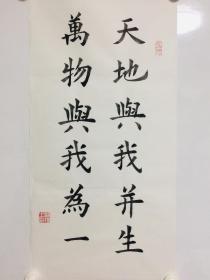 天地與我并生
萬物與我為一